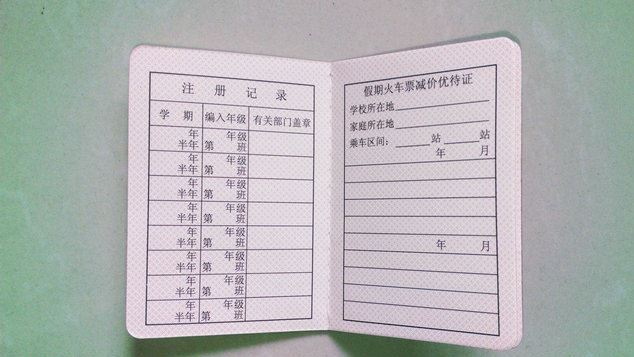 注 册 记 录
学 期 编入年级 有关部门盖章
年 年级
半年 第 班
年 年级
半年 第 班
年 年级
半年 第 班
年 年级
半年 第 班
年 年级
半年 第 班
年 年级
半年 第 班
年 年级
半年 第 班
年 年级
半年 第 班
假期火车票减价优待证
学校所在地
家庭所在地
乘车区间： 站 站
年 月
年 月